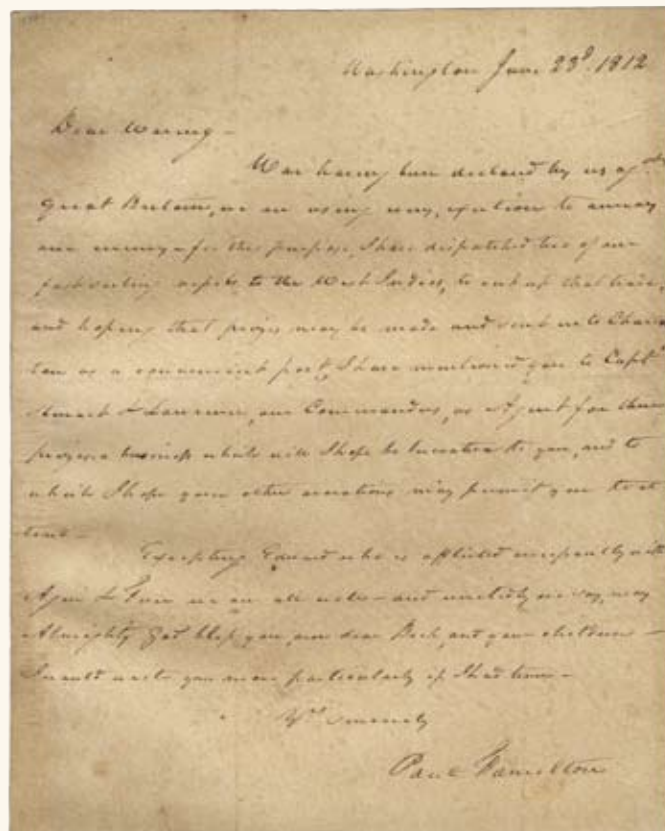 Washington June 23d. 1812
Dear Waring -
War having been declared by us agst
Great Britain, we are using every exertion to annoy
our enemy - for this purpose, I have dispatched two of our
fast sailing vessels to the West Indies, to cut up that trade,
and hoping that prizes may be made and sent into Charles
ton as a convenient port, I have mentioned you to Capts
& Lawrence, our Commanders, as Agent for their
prizes a business which will I hope be lucrative to you, and to
which I hope your other avocations may permit you to at
tend -
Excepting Edward who is afflicted incessantly with
Ague & Fever we are all well - and unitedly we say, may
Almighty God bless you, our dear Beck, and your children -
I would write you more particularly if I had time -
Yrs Sincerely
Paul Hamilton